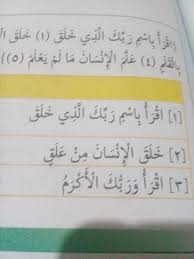 اقْرَأْ بِاسْمِ رَبِّكَ الَّذِي خَلَقَ (١) خَلَقَ
بِالْقَلَمِ (٤) عَلَّمَ الْإِنْسَانَ مَا لَمْ يَعْلَمْ (٥))
[١] اقْرَأْ بِاسْمِ رَبِّكَ الَّذِي خَلَقَ
[٢] خَلَقَ الْإِنْسَانَ مِنْ عَلَقٍ
[٣] اقْرَأْ وَرَبُّكَ الْأَكْرَمُ